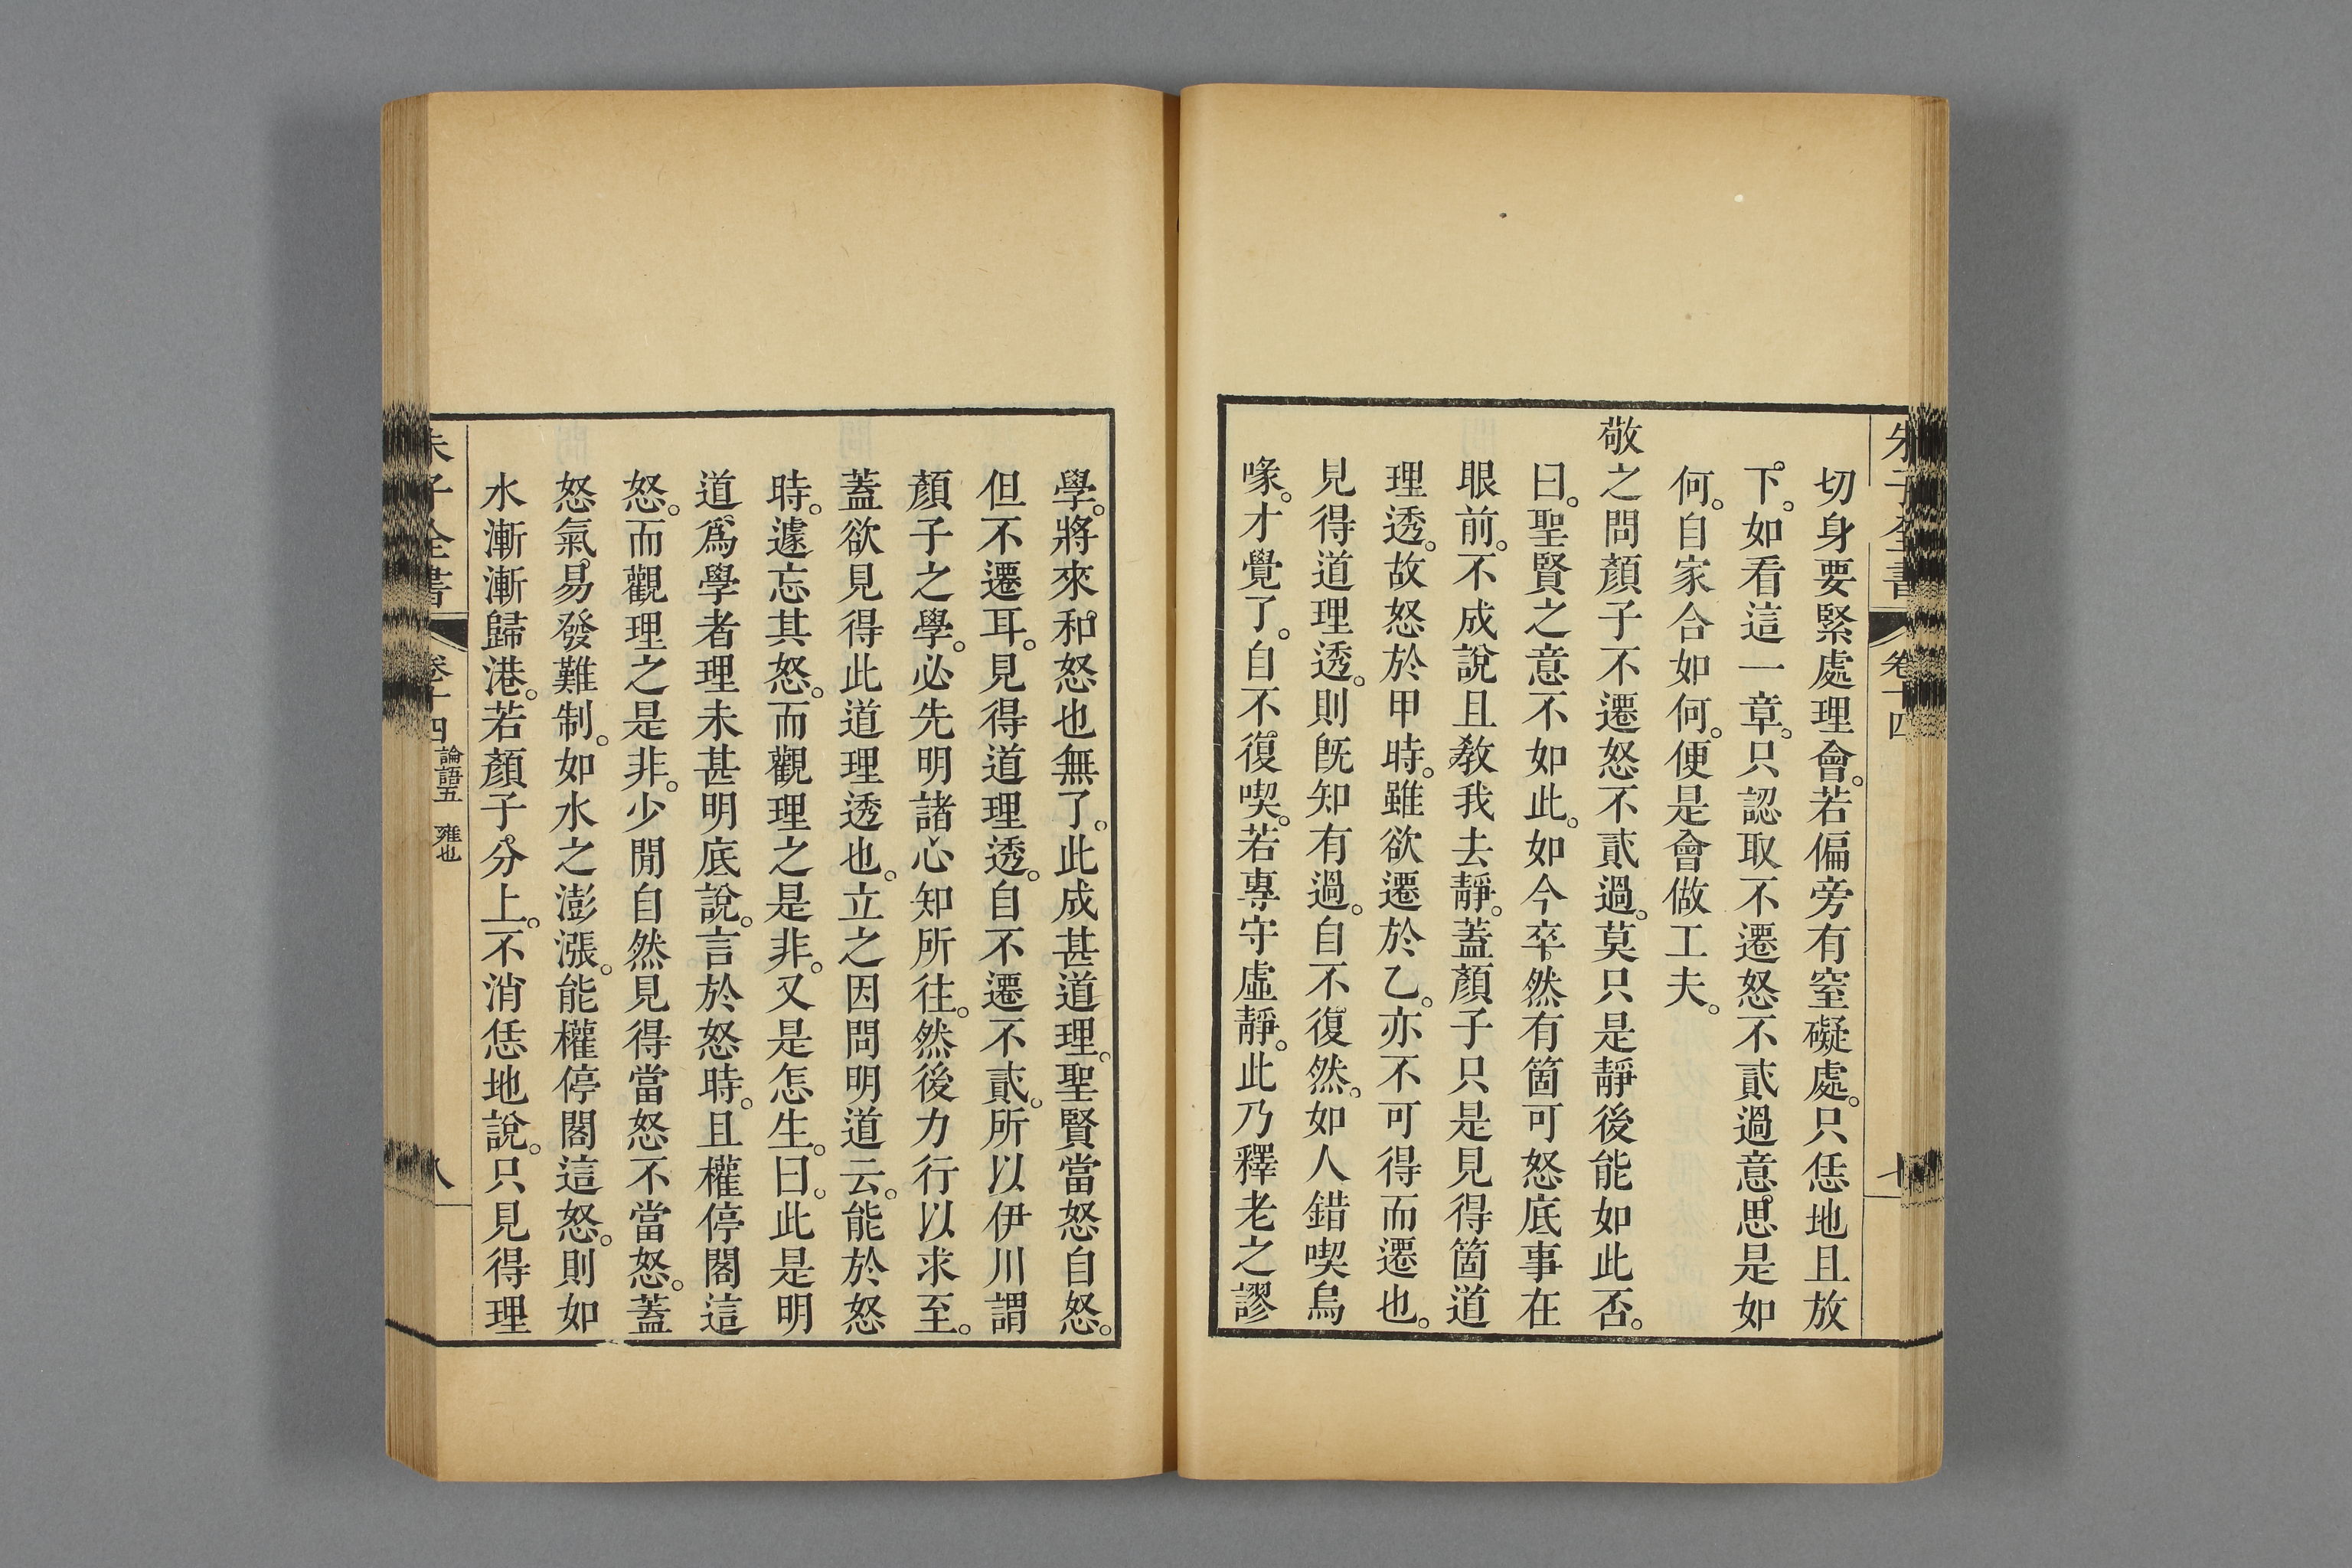 朱子全書 卷十四
切身要緊處理會。若偏旁有窒礙處。只恁地且放
下。如看這一章。只認取不遷怒不貳過意思是如
何。自家合如何。便是會做工夫。
敬之問顏子不遷怒不貳過。莫只是靜後能如此否。
曰。聖賢之意不如此。如今卒然有箇可怒底事在
眼前。不成說且教我去靜。蓋顏子只是見得箇道
理透。故怒於甲時。雖欲遷於乙。亦不可得而遷也。
見得道理透。則旣知有過。自不復然。如人錯喫烏
喙。才覺了。自不復喫。若專守虛靜。此乃釋老之謬
學。將來和怒也無了。此成甚道理。聖賢當怒自怒。
但不遷耳。見得道理透。自不遷不貳。所以伊川謂
顏子之學。必先明諸心知所往。然後力行以求至。
蓋欲見得此道理透也。立之因問明道云。能於怒
時。遽忘其怒。而觀理之是非。又是怎生。曰。此是明
道爲學者理未甚明底說。言於怒時。且權停閣這
怒。而觀理之是非。少閒自然見得當怒不當怒。蓋
怒氣易發難制。如水之澎漲。能權停閣這怒。則如
水漸漸歸港。若顏子分上。不消恁地說。只見得理
朱子全書 卷十四 論語五 雍也 八